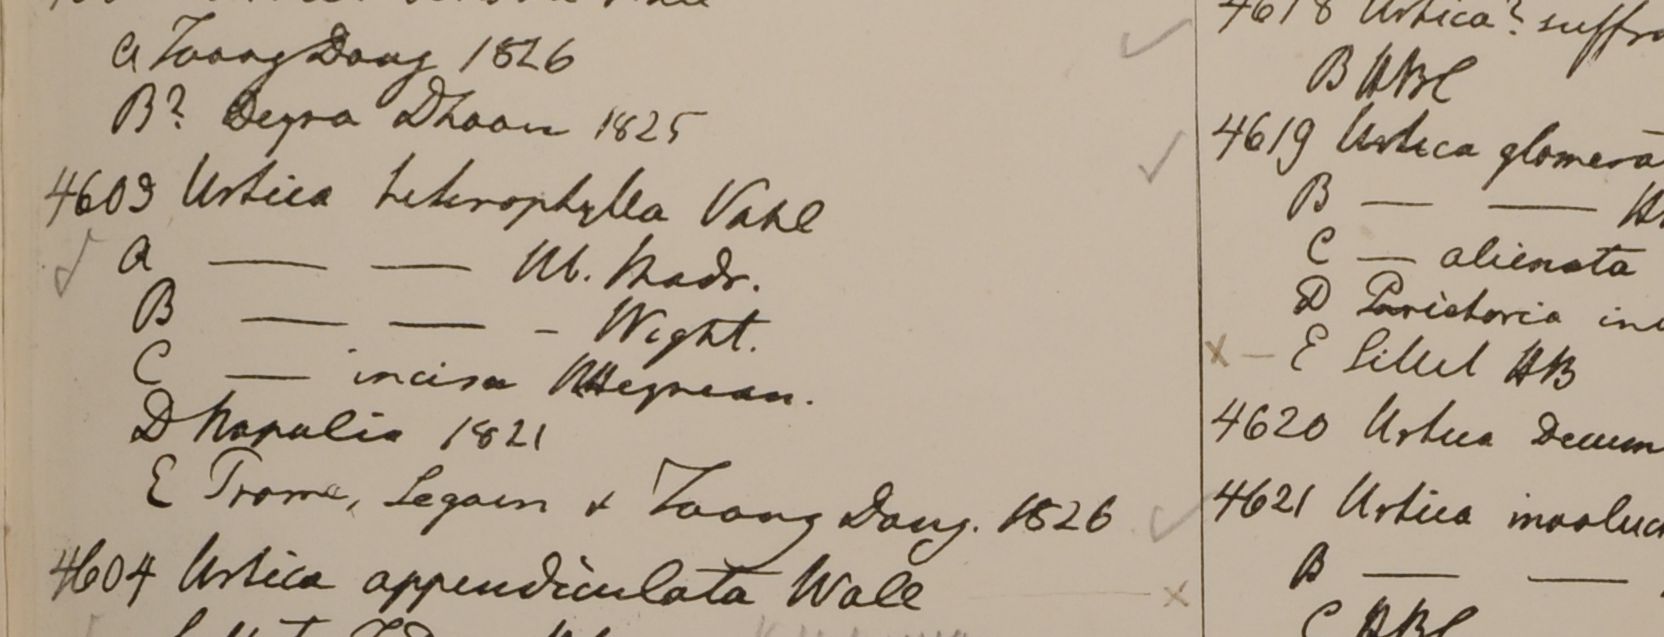 a Toong Dong 1826
B? Deyra Dhoon 1825
4603 Urtica heterophylla Vahl
a — — Madr.
B — — - Wight.
C — incisa
D Napalia 1821
E Prome, Segain & Toong Dong. 1826
4604 Urtica appendiculata Wall
4618 Urtica? suffr
B HBC
4619 Urtica glomera
B — — H
C — alienata
D Parietaria in
E Sillet HB
4620 Urtica Decum
4621 Urtica involuc
B — —
C HBC